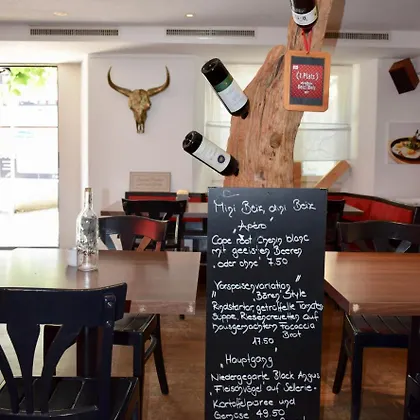 1. Platz
Mini Beiz, dini Beiz
"Apéro"
Cape roct Chenin blanc
mit geeisten Beeren
"oder ohne" 7.50
Vorspeisenvariation
"Bären" Style
Rindstartar, getrüffelte Tomaten
Suppe, Riesencrevetten auf
hausgemachtem Focaccia
Brot
17.50
"Hauptgang"
Niedergegarte Black Angus
Fleischvogel auf Selerie-
Kartoffelpüree und
Gemüse 49.50